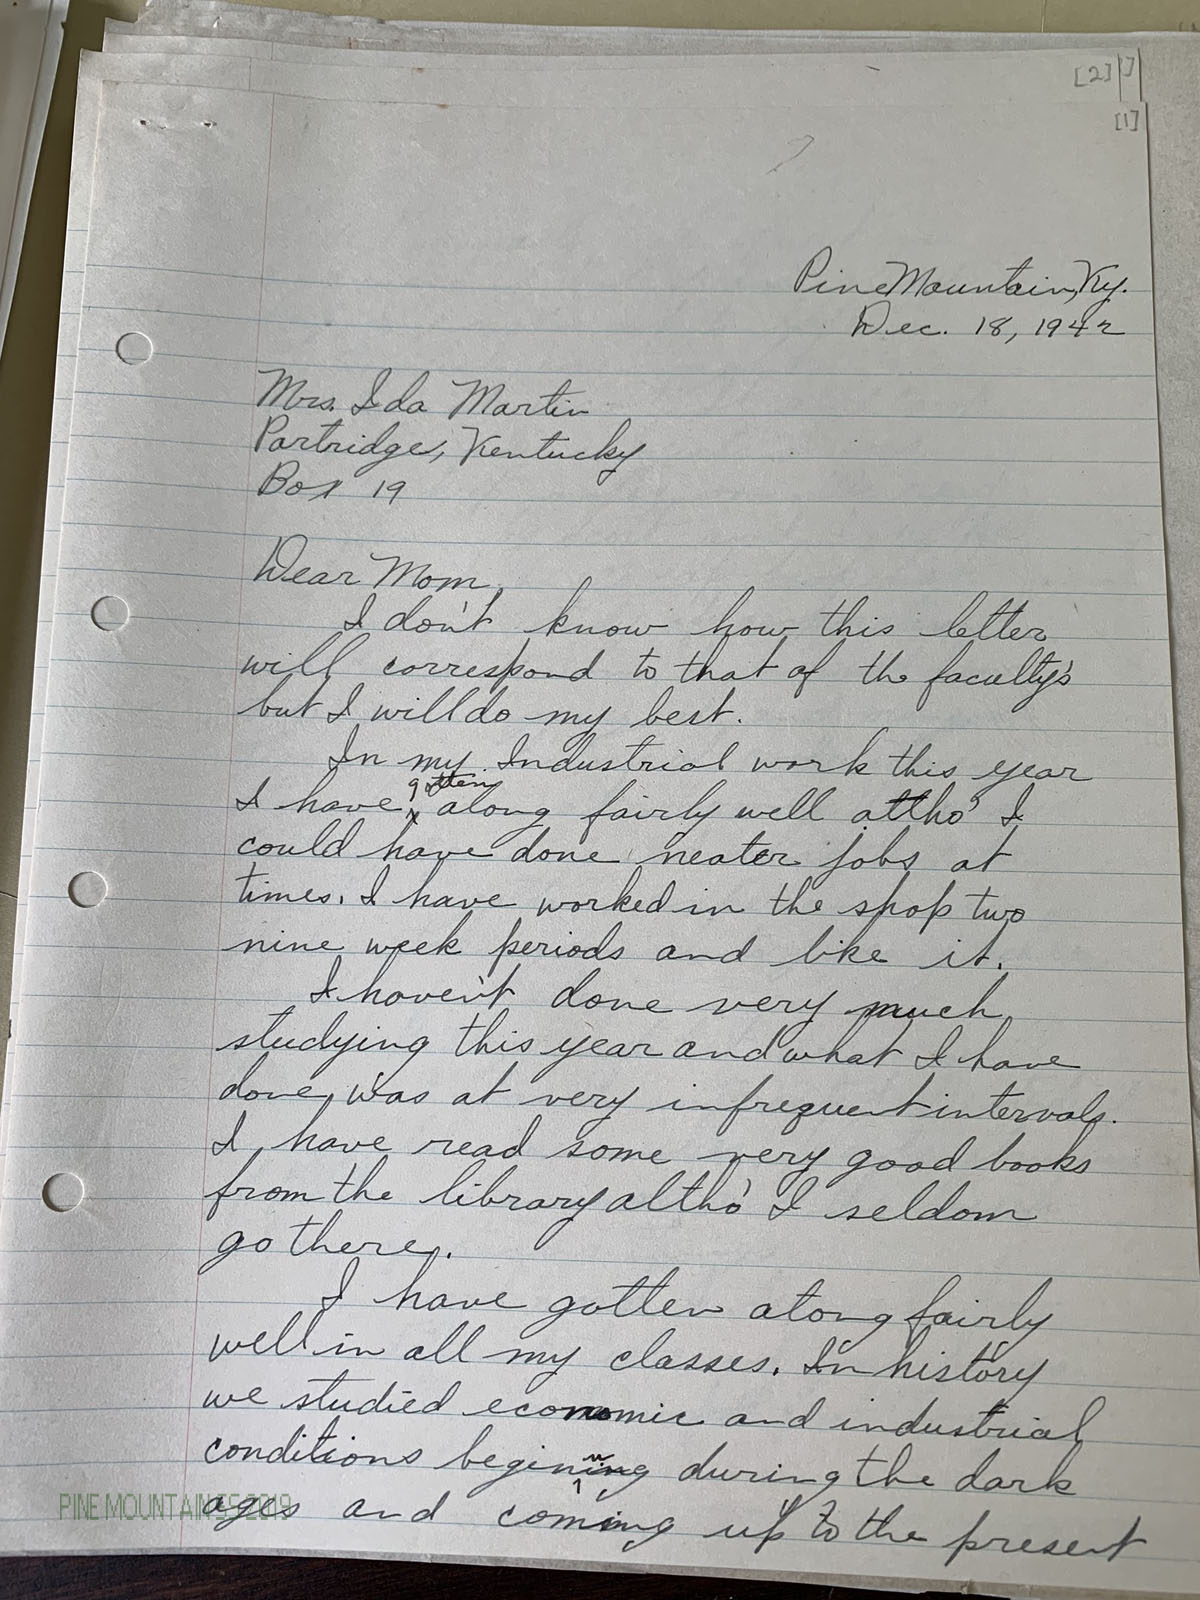 [2]
]
[1]
Pine Mountain, Ky.
Dec. 18, 1942
Mrs. Ida Martin
Partridge, Kentucky
Box 19
Dear Mom,
I don't know how this letter
will correspond to that of the faculty's
but I will do my best.
In my Industrial work this year
I have gotten along fairly well altho' I
could have done neater jobs at
times. I have worked in the shop two
nine week periods and like it.
I haven't done very much
studying this year and what I have
done was at very infrequent intervals.
I have read some very good books
from the library altho' I seldom
go there.
I have gotten along fairly
well in all my classes. In history
we studied economic and industrial
conditions beginning during the dark
ages and coming up to the present
PINE MOUNTAIN SS 2019